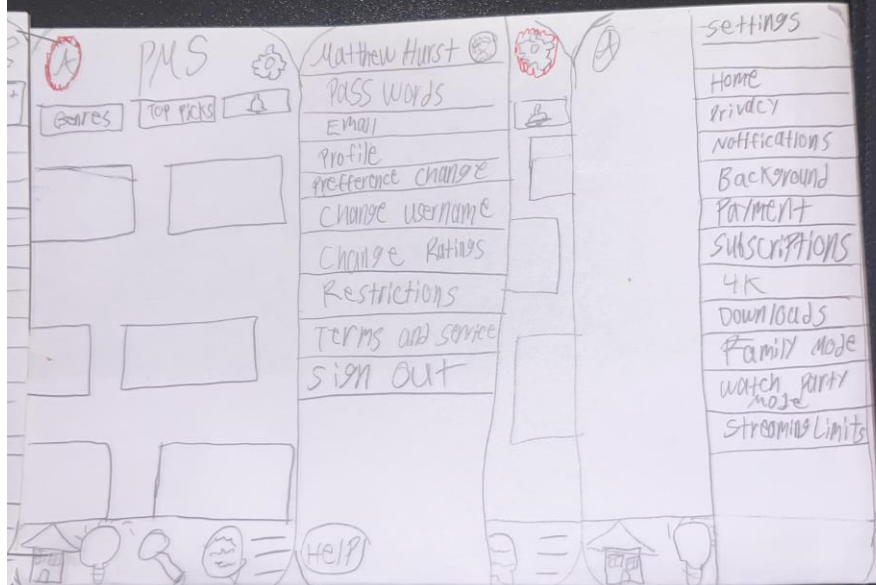 A
PMS
Genres
Top Picks
Matthew Hurst
Pass words
Email
Profile
Prefference change
Change username
Change Ratings
Restrictions
Terms and service
Sign out
Help
A
Settings
Home
Privacy
Notifications
Background
Payment
Subscriptions
4K
Downloads
Family Mode
Watch Party
Mode
Streaming Limits